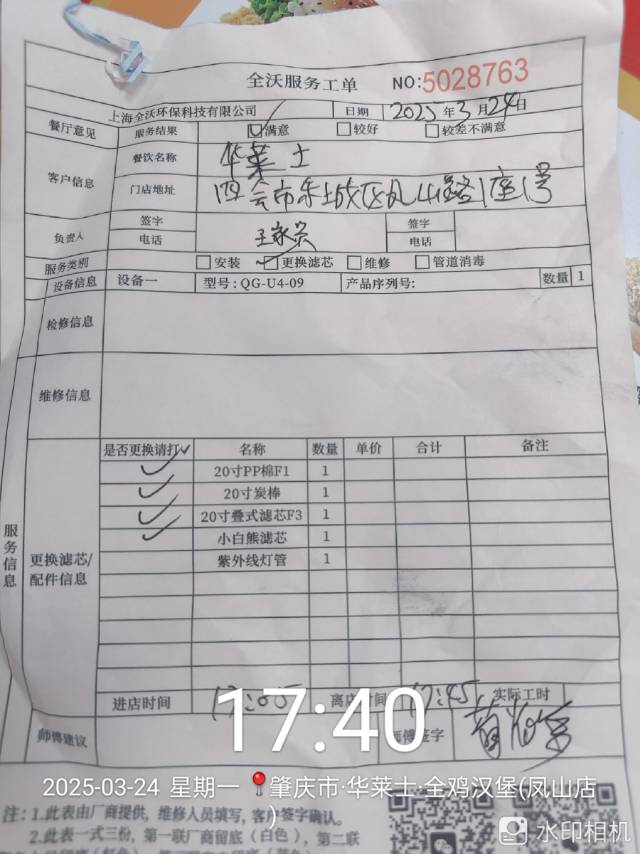 全沃服务工单 NO:5028763
上海全沃环保科技有限公司 日期 2025年3月24日
餐厅意见 服务结果 ☑满意 □较好 □较差不满意
客户信息 餐饮名称 华莱士
门店地址 四会市东城区凤山路1座1号
负责人 签字 签字
电话 电话
服务类别 □安装 ☑更换滤芯 □维修 □管道消毒
设备信息 设备一 型号:QG-U4-09 产品序列号: 数量 1
检修信息
维修信息
服务信息
更换滤芯/
配件信息
是否更换请打✓ 名称 数量 单价 合计 备注
✓ 20寸PP棉F1 1
✓ 20寸炭棒 1
✓ 20寸叠式滤芯F3 1
✓ 小白熊滤芯 1
紫外线灯管 1
进店时间 17:05 离店时间 17:45 实际工时
师傅建议 师傅签字
17:40
2025-03-24 星期一 肇庆市·华莱士·全鸡汉堡(凤山店
)
注:1.此表由厂商提供，维修人员填写，客户签字确认。
2.此表一式三份，第一联厂商留底（白色），第二联
水印相机